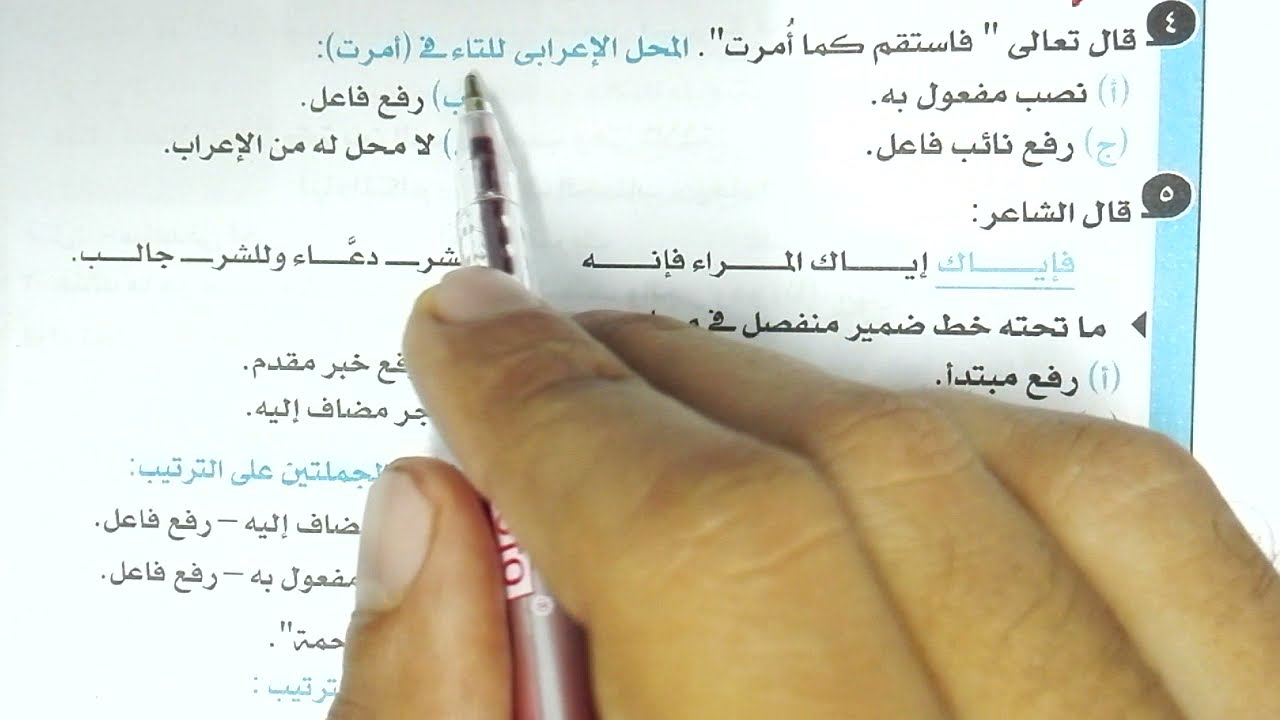 ٤ قال تعالى " فاستقم كما أُمرت". المحل الإعرابى للتاء في (أمرت):
(أ) نصب مفعول به. ب) رفع فاعل.
(ج) رفع نائب فاعل. ) لا محل له من الإعراب.
٥ قال الشاعر:
فإيـاك إياك المـراء فإنـه دعَّاء وللشر جالب.
ما تحته خط ضمير منفصل في
(أ) رفع مبتدأ. خبر مقدم.
جر مضاف إليه.
الجملتين على الترتيب:
إليه – رفع فاعل.
مفعول به – رفع فاعل.